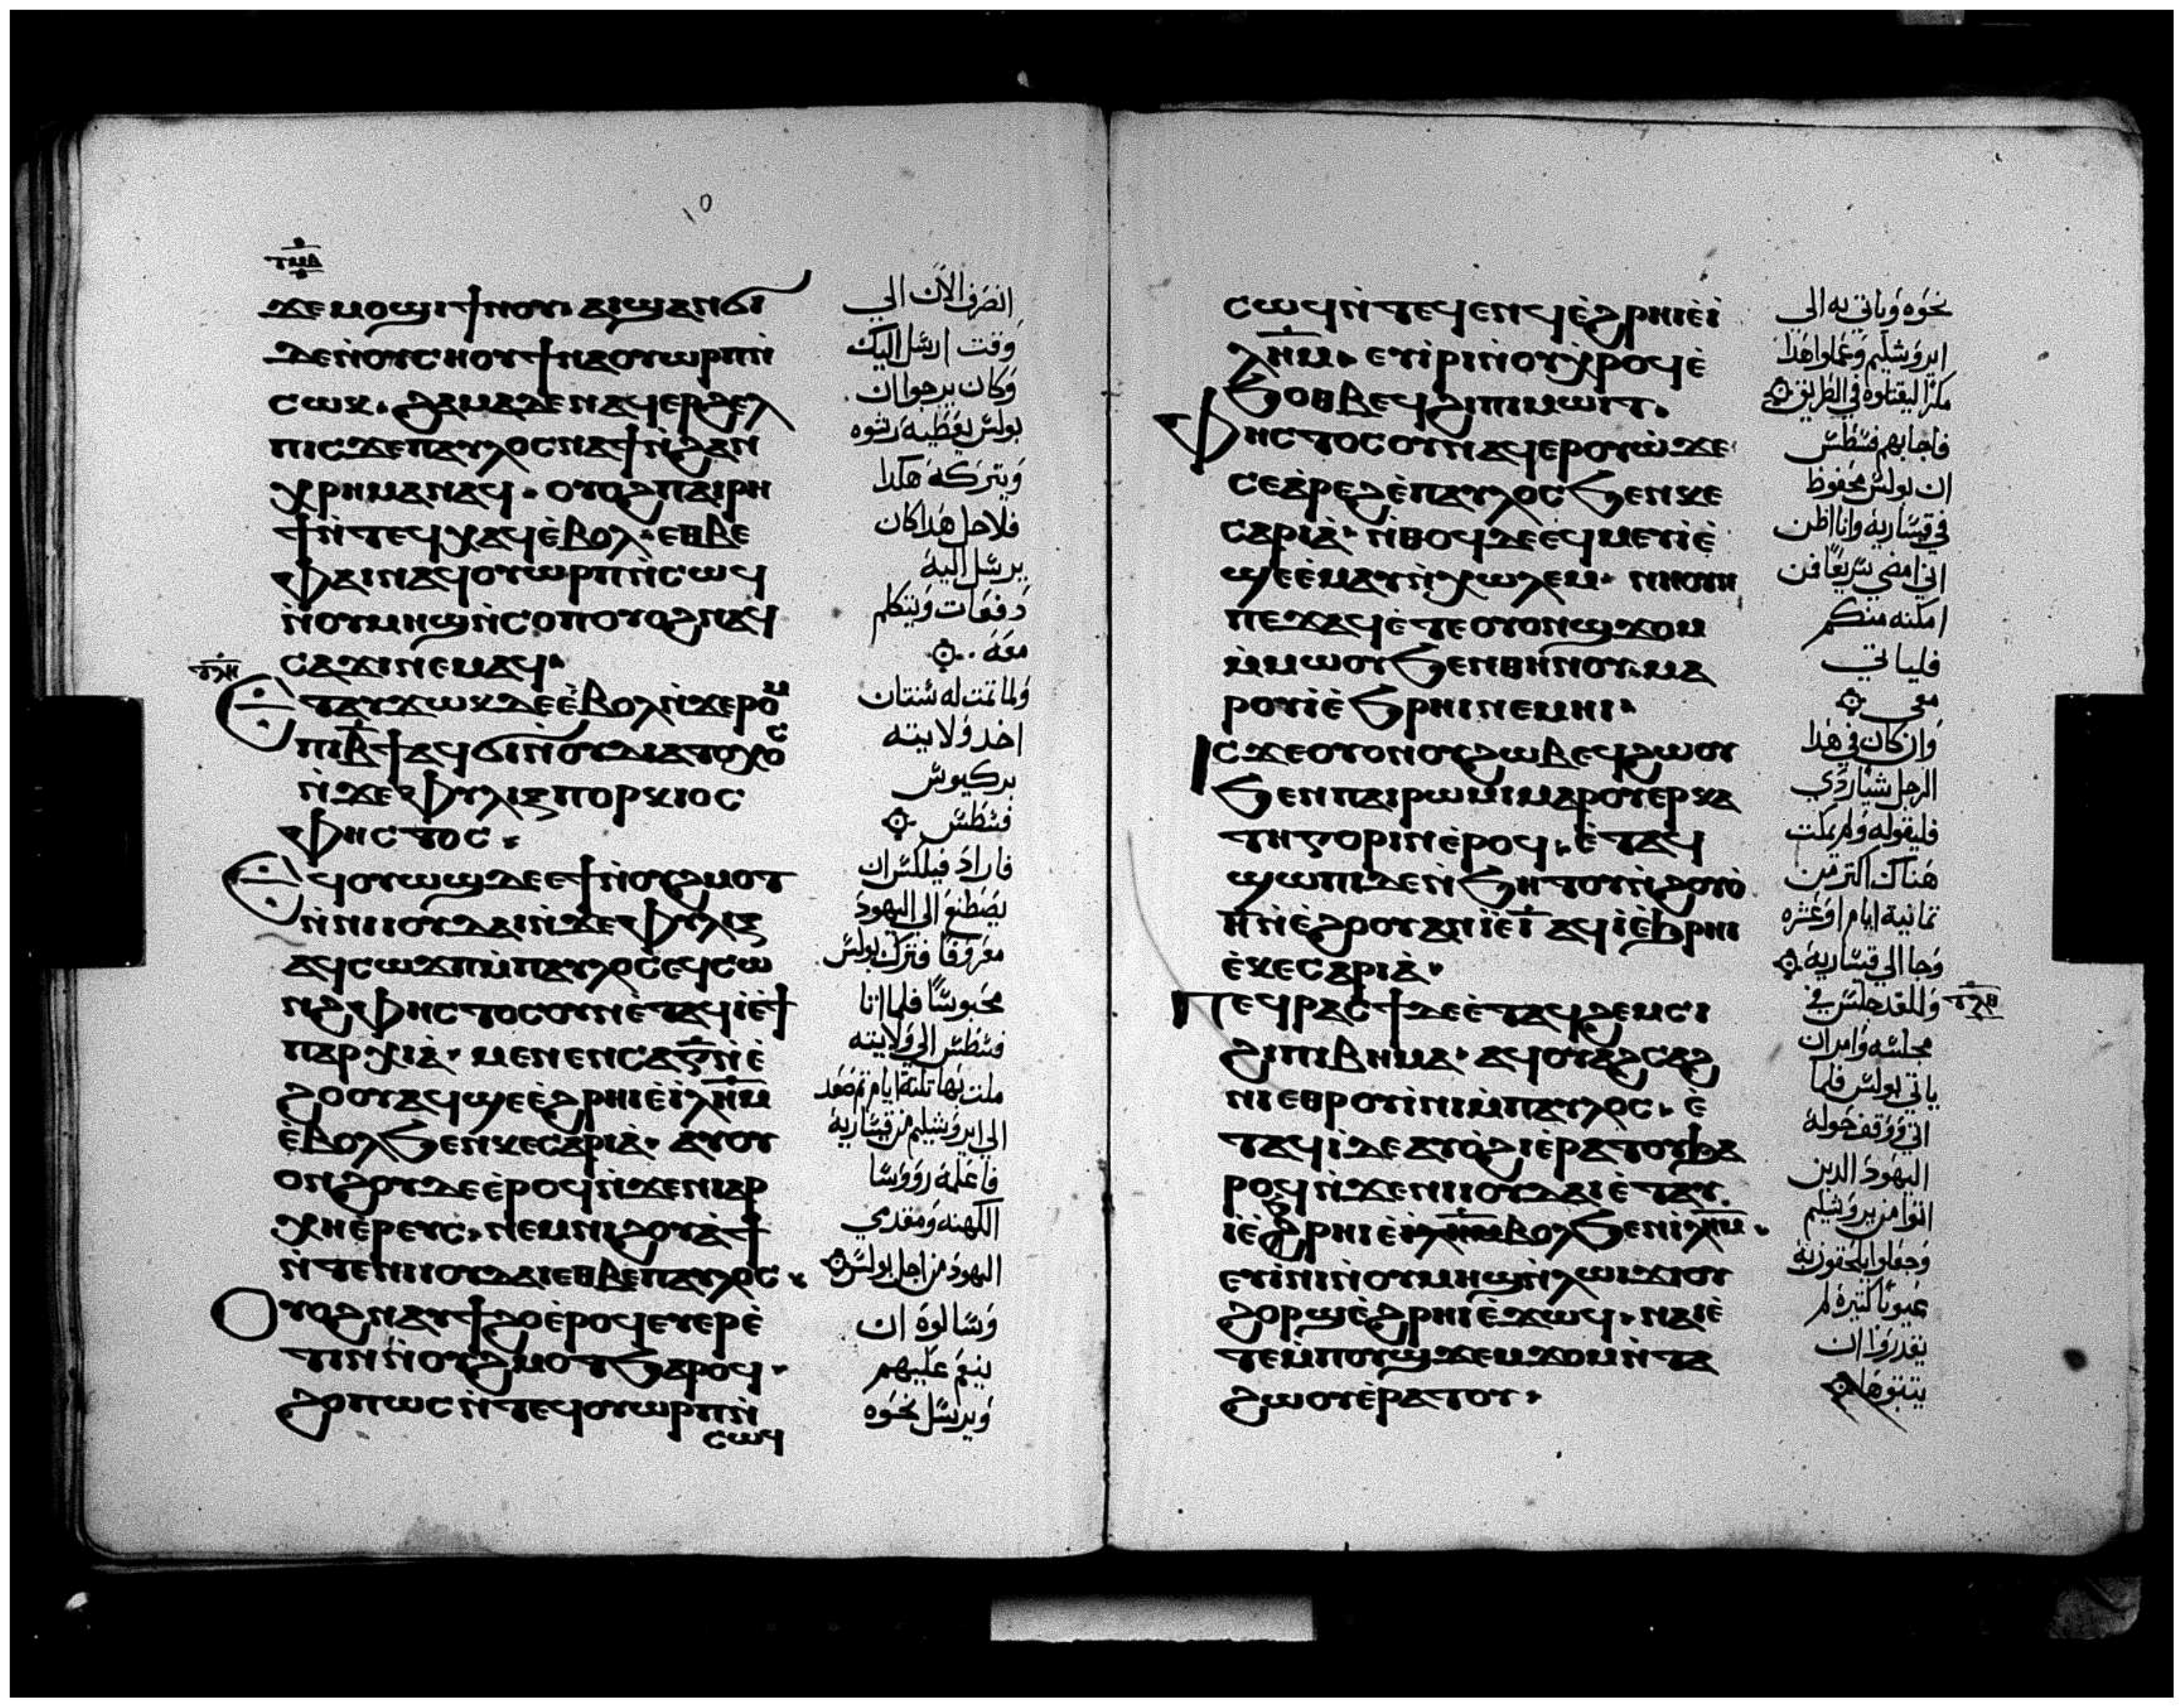 ϫⲉⲙⲟϣⲓϯⲛⲟⲩ· ⲁⲓϣⲁⲛϭⲓ
ⲇⲉⲛ̀ⲟⲩⲥⲏⲟⲩϯⲛⲁⲟⲩⲱⲣⲡⲛ̀
ⲥⲱⲕ· ϩⲁⲙⲁⲇⲉⲛⲁϥⲉⲣϩⲉⲗ
ⲡⲓⲥϫⲉⲡⲁⲩⲗⲟⲥⲛⲁϯⲛ̀ϩⲁⲛ
ⲭⲣⲏⲙⲁⲛⲁϥ· ⲟⲩⲟϩⲡⲁⲓⲣⲏ
ϯⲛ̀ⲧⲉϥⲭⲁϥⲉ̀ⲃⲟⲗ· ⲉⲑⲃⲉ
ⲫⲁⲓⲛⲁϥⲟⲩⲱⲣⲡⲛ̀ⲥⲱϥ
ⲛ̀ⲟⲩⲙⲏϣⲛ̀ⲥⲟⲡⲟⲩⲟϩⲛⲁϥ
ⲥⲁϫⲓⲛⲉⲙⲁϥ·
ⲉⲧⲁⲩϫⲱⲕⲇⲉⲉ̀ⲃⲟⲗⲛ̀ϫⲉⲣⲟⲙ
ⲡⲓⲃ̅ϯⲁϥϭⲓⲛ̀ⲟⲩⲇⲓⲁⲧⲟⲭⲟⲥ
ⲛ̀ϫⲉⲫⲩⲗⲓⲝⲡⲟⲣⲕⲓⲟⲥ
ⲫⲏⲥⲧⲟⲥ·
ⲉϥⲟⲩⲱϣⲇⲉⲉϯⲛ̀ⲟⲩϩⲙⲟⲧ
ⲛ̀ⲛⲓⲓⲟⲩⲇⲁⲓⲛ̀ϫⲉⲫⲩⲗⲓⲝ
ⲁϥⲥⲱϫⲡⲙ̀ⲡⲁⲩⲗⲟⲥⲉϥⲥⲱ
ⲛϩ ⲫⲏⲥⲧⲟⲥⲟⲩⲛⲉ̀ⲧⲁϥⲓⲉ̀ϯ
ⲡⲁⲣⲭⲓⲁ̀· ⲙⲉⲛⲉⲛⲥⲁⲅ̅ⲛ̀ⲉ̀
ϩⲟⲟⲩⲁϥϣⲉⲉ̀ϩⲣⲏⲓⲉ̀ⲓ̀ⲗ̅ⲏ̅ⲙ̅
ⲉ̀ⲃⲟⲗϧⲉⲛⲕⲉⲥⲁⲣⲓⲁ̀· ⲁⲩⲟⲩ
ⲟⲛϩⲟⲩⲇⲉⲉ̀ⲣⲟϥⲛ̀ϫⲉⲛⲓⲁⲣ
ⲭⲏⲉ̀ⲣⲉⲩⲥ· ⲛⲉⲙⲛⲓϩⲟⲩⲁ̀ϯ
ⲛ̀ⲧⲉⲛⲓⲓⲟⲩⲇⲁⲓⲉⲑⲃⲉⲡⲁⲩⲗⲟⲥ·
ⲟⲩⲟϩⲛⲁⲩϯϩⲟⲉ̀ⲣⲟϥⲉⲩⲉⲣⲉ̀
ⲧⲓⲛⲛ̀ⲟⲩϩⲙⲟⲧϧⲁⲣⲟϥ·
ϩⲟⲡⲱⲥⲛ̀ⲧⲉϥⲟⲩⲱⲣⲡⲛ̀
ⲥⲱϥ
انصرف الان الي
وقت ارسل اليك
وكان يرجوا ان
بولس يعطيه رشوه
ويتركه هكدا
فلاجل هدا كان
يرسل اليه
دفعات ويتكلم
معه
ولما تمت له سنتان
اخد ولايته
بركيوس
فسطس
فاراد فيلكس ان
يصطنع الي اليهود
معروفا فترك بولس
محبوسا فلما اتا
فسطس الي ولايته
ملت بها تلتة ايام تم صعد
الي ايروشليم من قيسارية
فاعلمه رووسا
الكهنه ومقدمي
اليهود من اجل بولس
وسالوه ان
ينعم عليهم
ويرسل نحوه
ⲥⲱϥⲛ̀ⲧⲉϥⲉⲛϥⲉ̀ϩⲣⲏⲓⲉ̀ⲓ̀
ⲗ̅ⲏ̅ⲙ̅· ⲉⲩⲓ̀ⲣⲓⲛ̀ⲟⲩⲭⲣⲟϥⲉ̀
ϧⲟⲑⲃⲉϥϩⲓⲡⲓⲙⲱⲓⲧ·
ⲫⲏⲥⲧⲟⲥⲟⲩⲛⲁϥⲉⲣⲟⲩⲱ̀ϫⲉ
ⲥⲉⲁ̀ⲣⲉϩⲉ̀ⲡⲁⲩⲗⲟⲥϧⲉⲛⲕⲉ
ⲥⲁⲣⲓⲁ̀· ⲛ̀ⲑⲟϥⲇⲉⲉϥⲙⲉⲩⲓⲉ̀
ϣⲉⲉ̀ⲙⲁⲩⲛ̀ⲭⲱⲗⲉⲙ· ⲛⲏⲟⲩⲛ
ⲡⲉϫⲁϥⲉ̀ⲧⲉⲟⲩⲟⲛϣϫⲟⲙ
ⲙ̀ⲙⲱⲟⲩϧⲉⲛⲑⲏⲛⲟⲩ·ⲙⲁ
ⲣⲟⲩⲓⲉ̀ϧⲣⲏⲓⲛⲉⲙⲏⲓ·
ⲓⲥϫⲉⲟⲩⲟⲛⲟⲩϩⲱⲃⲉϥϩⲱⲟⲩ
ϧⲉⲛⲡⲁⲓⲣⲱⲙⲓⲙⲁⲣⲟⲩⲉⲣⲕⲁ
ⲧⲏⲅⲟⲣⲓⲛⲉ̀ⲣⲟϥ·ⲉ̀ⲧⲁϥ
ϣⲱⲡⲓⲇⲉⲛ̀ϧⲏⲧⲟⲩⲛ̀ϩⲟⲩⲟ̀
ⲏ̅ⲛ̀ⲉ̀ϩⲟⲟⲩⲁⲛⲓⲉ̀ⲓ̅ ⲁϥⲓⲉ̀ϧⲣⲏⲓ
ⲉ̀ⲕⲉⲥⲁⲣⲓⲁ̀·
ⲡⲉϥⲣⲁⲥϯⲇⲉⲉ̀ⲧⲁϥϩⲉⲙⲥⲓ
ϩⲓⲡⲓⲃⲏⲙⲁ· ⲁϥⲟⲩⲁϩⲥⲁϩ
ⲛⲓⲉⲑⲣⲟⲩⲓ̀ⲛⲓⲙ̀ⲡⲁⲩⲗⲟⲥ· ⲉ̀
ⲧⲁϥⲓ̀ⲇⲉⲁⲩⲟ̀ϩⲓⲉ̀ⲣⲁⲧⲟⲩϧⲁ
ⲣⲟϥⲛ̀ϫⲉⲛⲓⲓⲟⲩⲇⲁⲓⲉ̀ⲧⲁⲩ
ⲓ̀ⲉ̀ϩⲣⲏⲓⲉ̀ⲓ̀ⲗ̅ⲏ̅ⲙ̅ⲃⲟⲗϧⲉⲛⲓⲗ̅ⲏ̅ⲙ̅·
ⲉⲩⲓ̀ⲛⲓⲛ̀ⲟⲩⲙⲏϣⲛ̀ⲗⲱⲓϫⲓⲟⲩ
ϩⲟⲣϣⲉ̀ϩⲣⲏⲓⲉ̀ϫⲱϥ· ⲛⲁⲓⲉ̀
ⲧⲉⲙ̀ⲡⲟⲩϣϫⲉⲙϫⲟⲙⲛ̀ⲧⲁ
ϩⲱⲟⲩⲉ̀ⲣⲁⲧⲟⲩ·
نحوه وياتي به الي
ايروشليم وعملوا هدا
مكرا ليقتلوه في الطريق
فاجابهم فسطس
ان بولس محفوظ
في قيسارية وانا اظن
اني امضي سريعا فمن
امكنه منكم
فلياتي
معي
وان كان في هدا
الرجل شيا ردي
فليقوله ولم يمكت
هناك اكتر من
تمانية ايام او عشره
وجا الي قيسارية
وللغد جلس في
مجلسه وامر ان
ياتي بولس فلما
اتي ووقف حوله
اليهود الدين
اتوا من يروشليم
وجعلوا يلحقون به
عيوبا كتيرة لم
يقدروا ان
يتبتوها